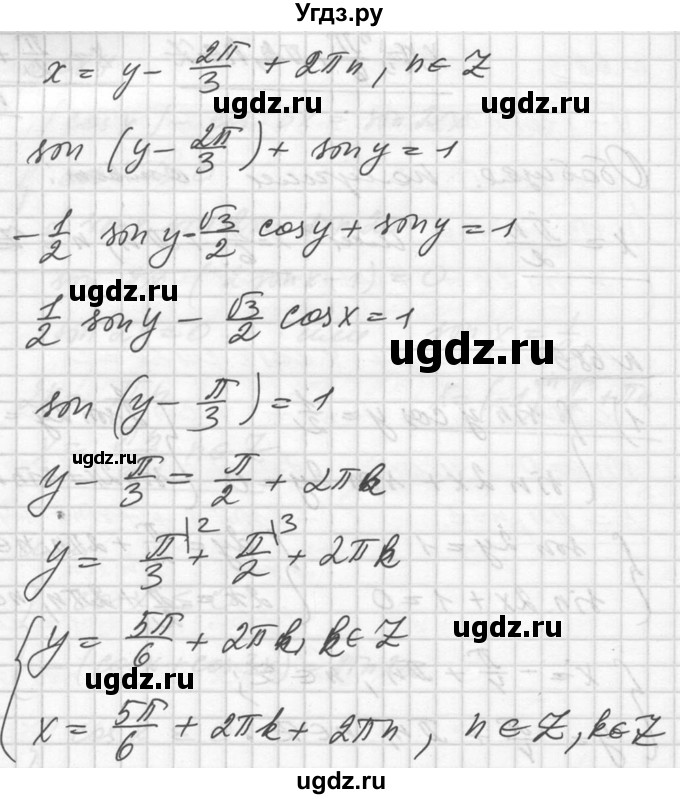 Угдз.ру
x = y - 2π/3 + 2πn, n ∈ Z
ugdz.ru ugdz.ru
sin (y - 2π/3) + sin y = 1
-1/2 sin y - √3/2 cos y + sin y = 1
ugdz.ru
1/2 sin y - √3/2 cos x = 1
ugdz.ru
sin (y - π/3) = 1
ugdz.ru
y - π/3 = π/2 + 2πk
y = π/3 |2 + π/2 |3 + 2πk
{ y = 5π/6 + 2πk, k ∈ Z
ugdz.ru
ugdz.ru
x = 5π/6 + 2πk + 2πn, n ∈ Z, k ∈ Z
ugdz.ru